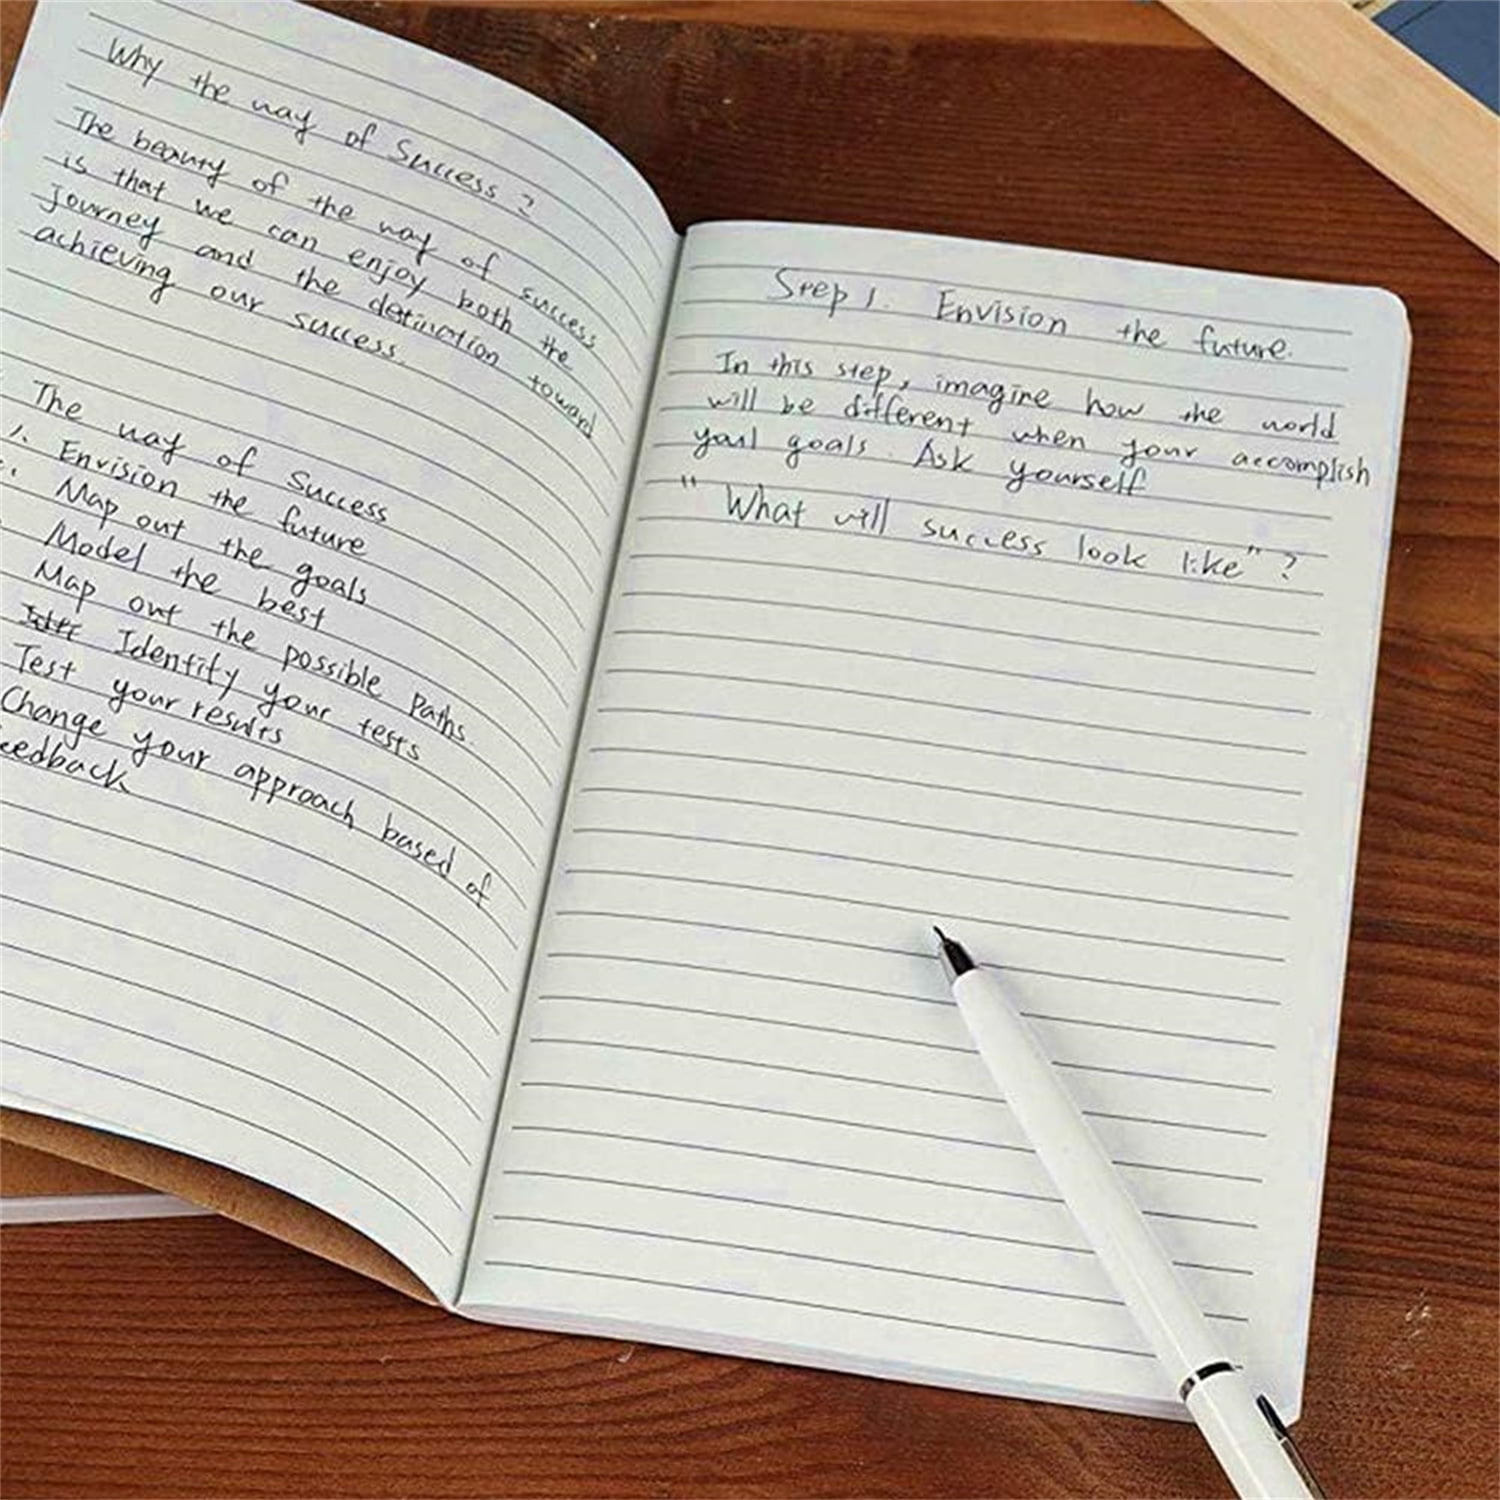 Why the way of Success?
The beauty of the way of success
is that we can enjoy both the
journey and the destination toward
achieving our success.
The way of Success
1. Envision the future
Map out the goals
Model the best
Map out the possible paths.
Identify your tests
Test your results
Change your approach based of
eedback
Step 1. Envision the future.
In this step, imagine how the world
will be different when your accomplish
goals. Ask yourself
"What will success look like"?